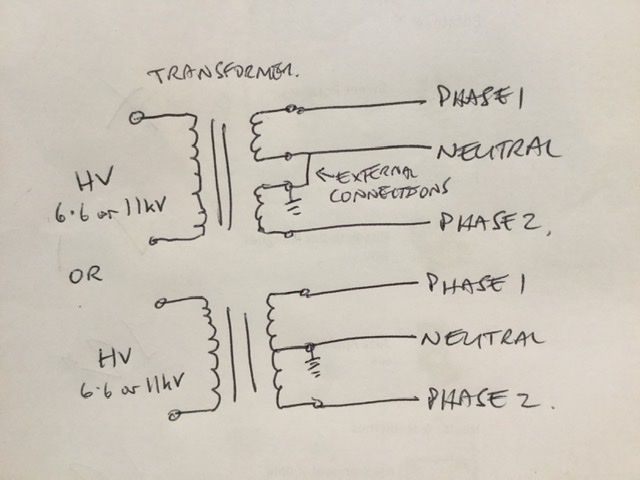 TRANSFORMER.
PHASE 1
NEUTRAL
HV
6.6 or 11kV
EXTERNAL
CONNECTIONS
PHASE 2.
OR
PHASE 1
HV
6.6 or 11kV
NEUTRAL
PHASE 2.